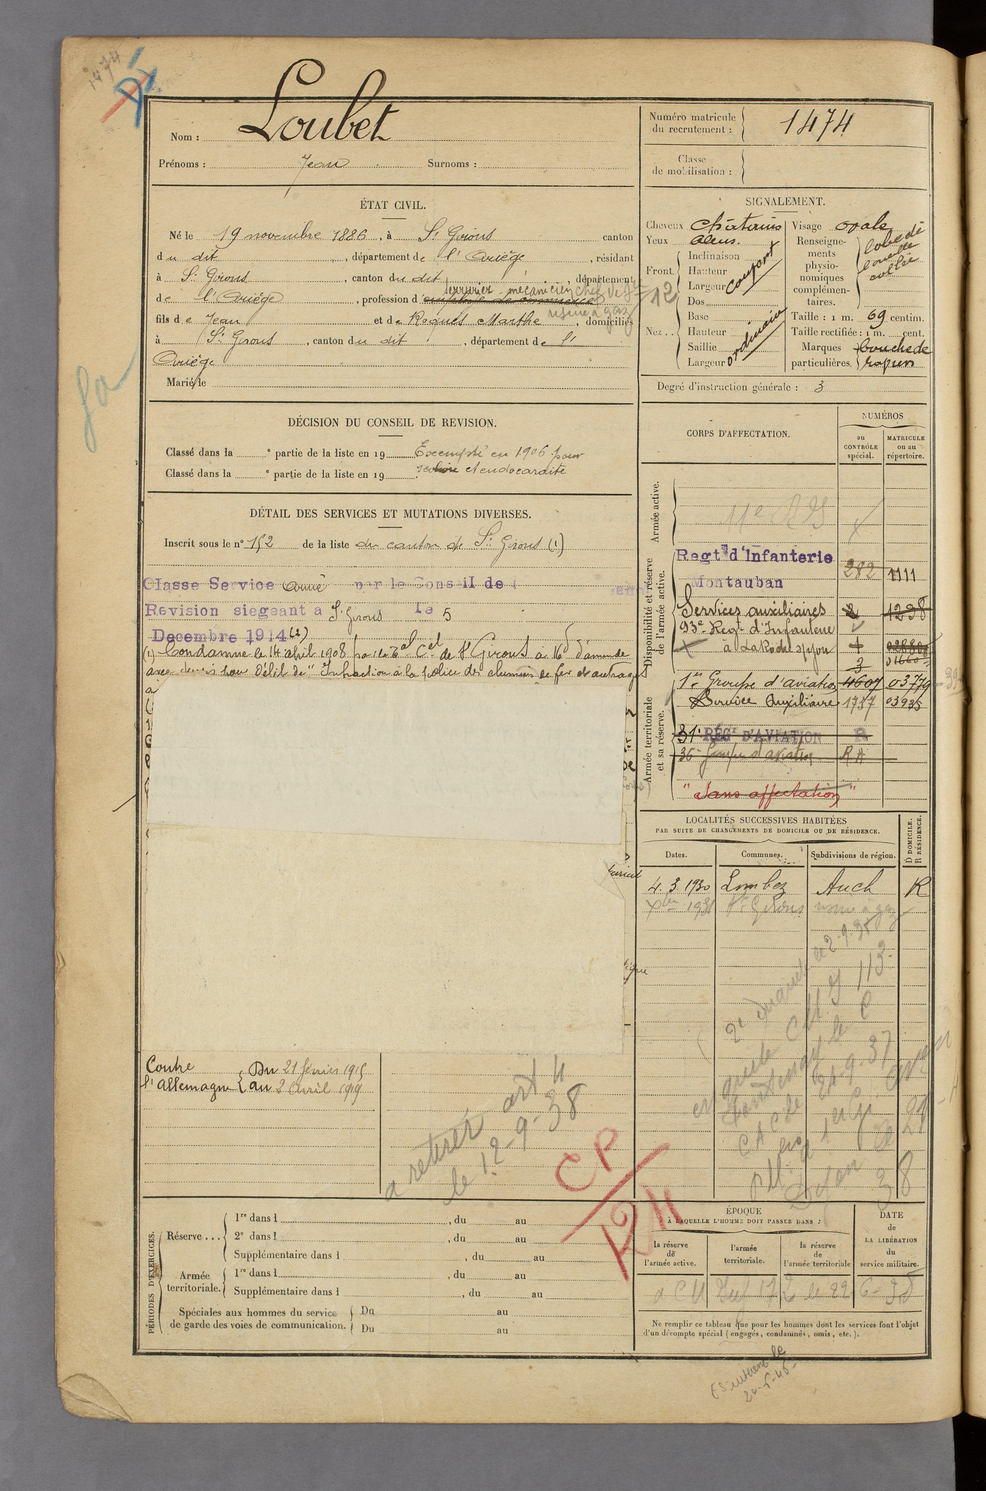 1474
Nom : Loubet
Prénoms : Jean Surnoms :
Numéro matricule
du recrutement : 1474
Classe
de mobilisation :
ÉTAT CIVIL.
Né le 19 novembre 1886, à St Girons canton
du dit, département de l'Ariège, résidant
à St Girons, canton du dit, département
serrurier-mécanicien chef de
de l'Ariège, profession d'employé de commerce
usine à gaz
fils de Jean et de Roques Marthe, domiciliés
à St Girons, canton du dit, département de l'
Ariège
Marié le
SIGNALEMENT.
Cheveux châtains
Yeux bleus.
Front. Inclinaison
Hauteur
Largeur
Dos
Nez. Base
Hauteur
Saillie
Largeur ordinaire
Visage ovale
Renseigne-
ments
physio-
nomiques
complémen-
taires.
Taille : 1 m. 69 centim.
Taille rectifiée : 1 m. cent.
Marques
particulières.
Degré d'instruction générale : 3
DÉCISION DU CONSEIL DE REVISION.
Classé dans la e partie de la liste en 19 Exempté en 1906 pour
Classé dans la e partie de la liste en 19 et endocardite
DÉTAIL DES SERVICES ET MUTATIONS DIVERSES.
Inscrit sous le n° 152 de la liste du canton de St Girons (1)
Classe Service Armé par le Conseil de
Revision siegeant a St Girons le 5
Decembre 1914 (2)
(1) Condamné le 14 avril 1908 par le Bal Cel de St Girons à 16f d'amende
avec sursis pour délit de "Infraction à la police des chemins de fer et outrages
Contre l'Allemagne { Du 21 février 1915
au 2 avril 1919
a retirer art 4
le 12-9-38
CP
1211
CORPS D'AFFECTATION.
NUMÉROS
au
CONTRÔLE
spécial.
MATRICULE
ou au
répertoire.
Armée active.
Disponibilité et réserve
de l'armée active.
Armée territoriale
et sa réserve.
Regt d'Infanterie 282 1111
Montauban
Services auxiliaires 2 1238
93e Regt d'Infanterie
à La Roche s/yon
1er Groupe d'aviation 4607 03779
Service Auxiliaire 1737 03935
31e RÉGt D'AVIATION R
36e Groupe d'aviation RA
"Sans affectation"
LOCALITÉS SUCCESSIVES HABITÉES
PAR SUITE DE CHANGEMENTS DE DOMICILE OU DE RÉSIDENCE.
D DOMICILE.
R RÉSIDENCE.
Dates. Communes. Subdivisions de région.
4.3.1930 Lombez Auch R
Xbre 1931 St Girons usine à gaz
PÉRIODES D'EXERCICES.
Réserve... 1re dans l , du au
2e dans l , du au
Supplémentaire dans l , du au
Armée
territoriale. 1re dans l , du au
Supplémentaire dans l , du au
Spéciales aux hommes du service
de garde des voies de communication. Du au
Du au
ÉPOQUE
À LAQUELLE L'HOMME DOIT PASSER DANS :
la réserve
de
l'armée active.
l'armée
territoriale.
la réserve
de
l'armée territoriale
DATE
de
LA LIBÉRATION
du
service militaire.
Ne remplir ce tableau que pour les hommes dont les services font l'objet
d'un décompte spécial (engagés, condamnés, omis, etc.).